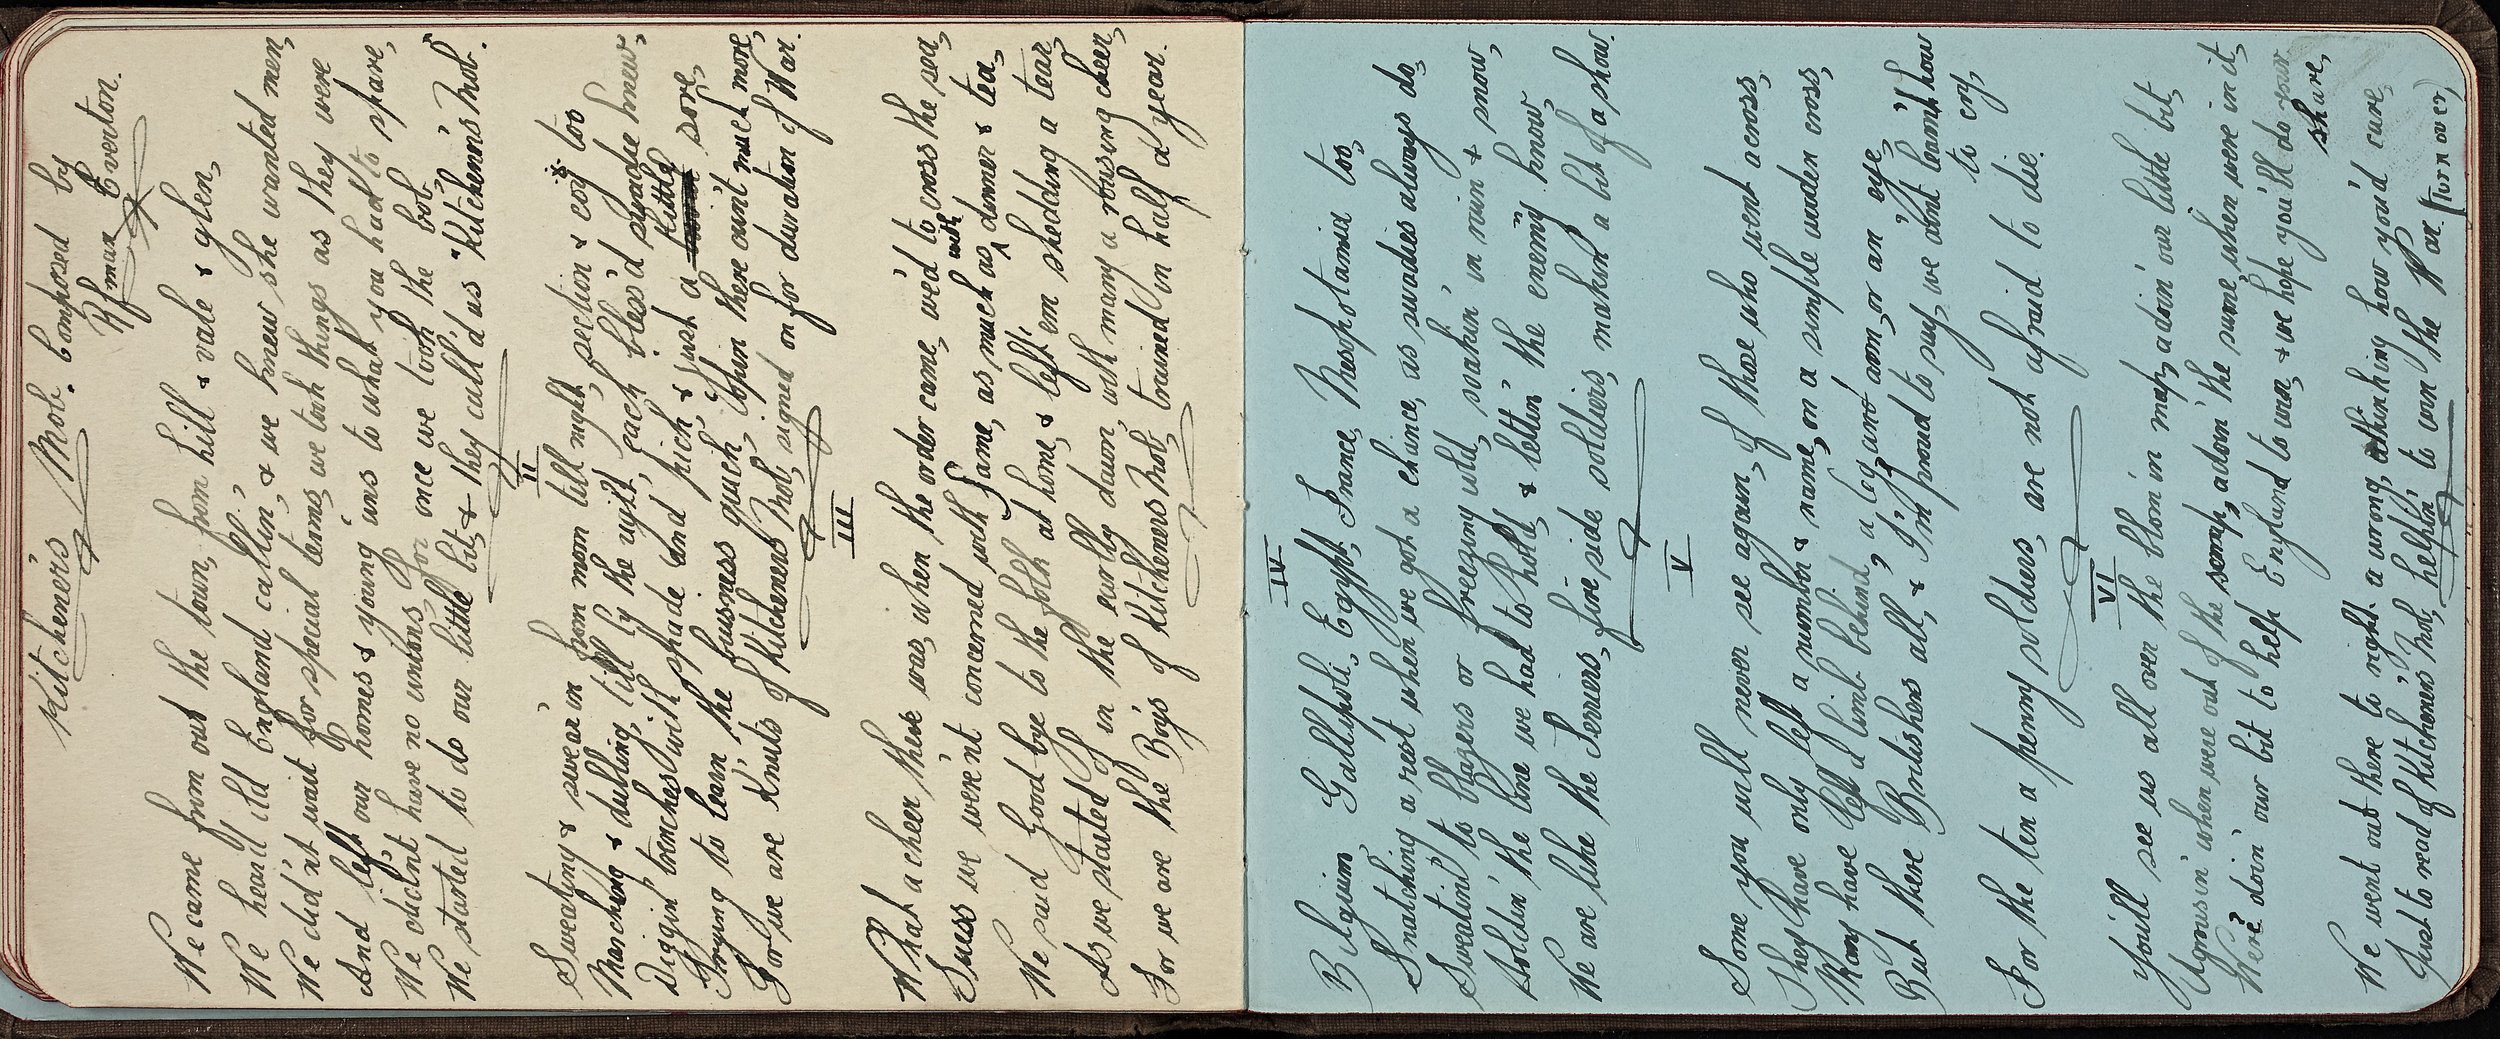 Kitchener's Mob. Composed by
Rfman Everton.
We came from out the town, from hill & vale & glen,
We heard old England callin', & we knew she wanted men,
We did'nt wait for special terms, we took things as they were
And left our homes & young 'uns to what you had to spare,
We didn't have no unions for once we took the bob,
We started to do our little bit, & they call'd us "Kitchener's Mob."
II
Sweating & swearin from morn till night, section & coy too
Marching & dubling, till by the right each bless'd brigade knew,
Diggin' trenches with spade and pick, & just a little sore,
Trying to learn the business quick, 'Opin there ain't much more,
For we are Knuts of Kitcheners Mob, signed on for duration of War.
III
What a cheer there was, when the order came, we'd to cross the sea,
Sure we were'nt concerned with fame, as much as with dinner & tea,
We said Good-bye to the folk at home, & left 'em shedding a tear,
As we started off in the early dawn, with many a rousing cheer,
For we are the Boys of Kitcheners Mob, trained in half a year.
IV
Belguim, Gallipoli, Egypt, France, Mesopotamia too,
Snatching a rest when we got a chance, as swadies always do,
Sweatin' to blazers or freezing cold, soakin' in rain & snow,
Holdin' the line we had to hold, & lettin' the enemy know,
We are like the Terriers, fire side soldiers, makin a bit of a show.
V
Some you will never see again, of those who went across,
They have only left a number & name, on a simple wooden cross,
Many have left a limb behind a leg and arm, or an eye,
But there Britishers all, & I'm proud to say, we don't learn 'em how
to cry,
For the ten a penny soldiers, are not afraid to die.
VI
You'll see us all over the bloom'in map, a doin' our little bit,
Grousin' when were out of the scrap, a doin' the same when were in it,
We're doin' our bit to help England to win, & we hope you'll do your
share,
We went out there to right a wrong, athinking how you'd care,
Just to read of Kitchener's Mob, helpin', to win the War. (turn over)